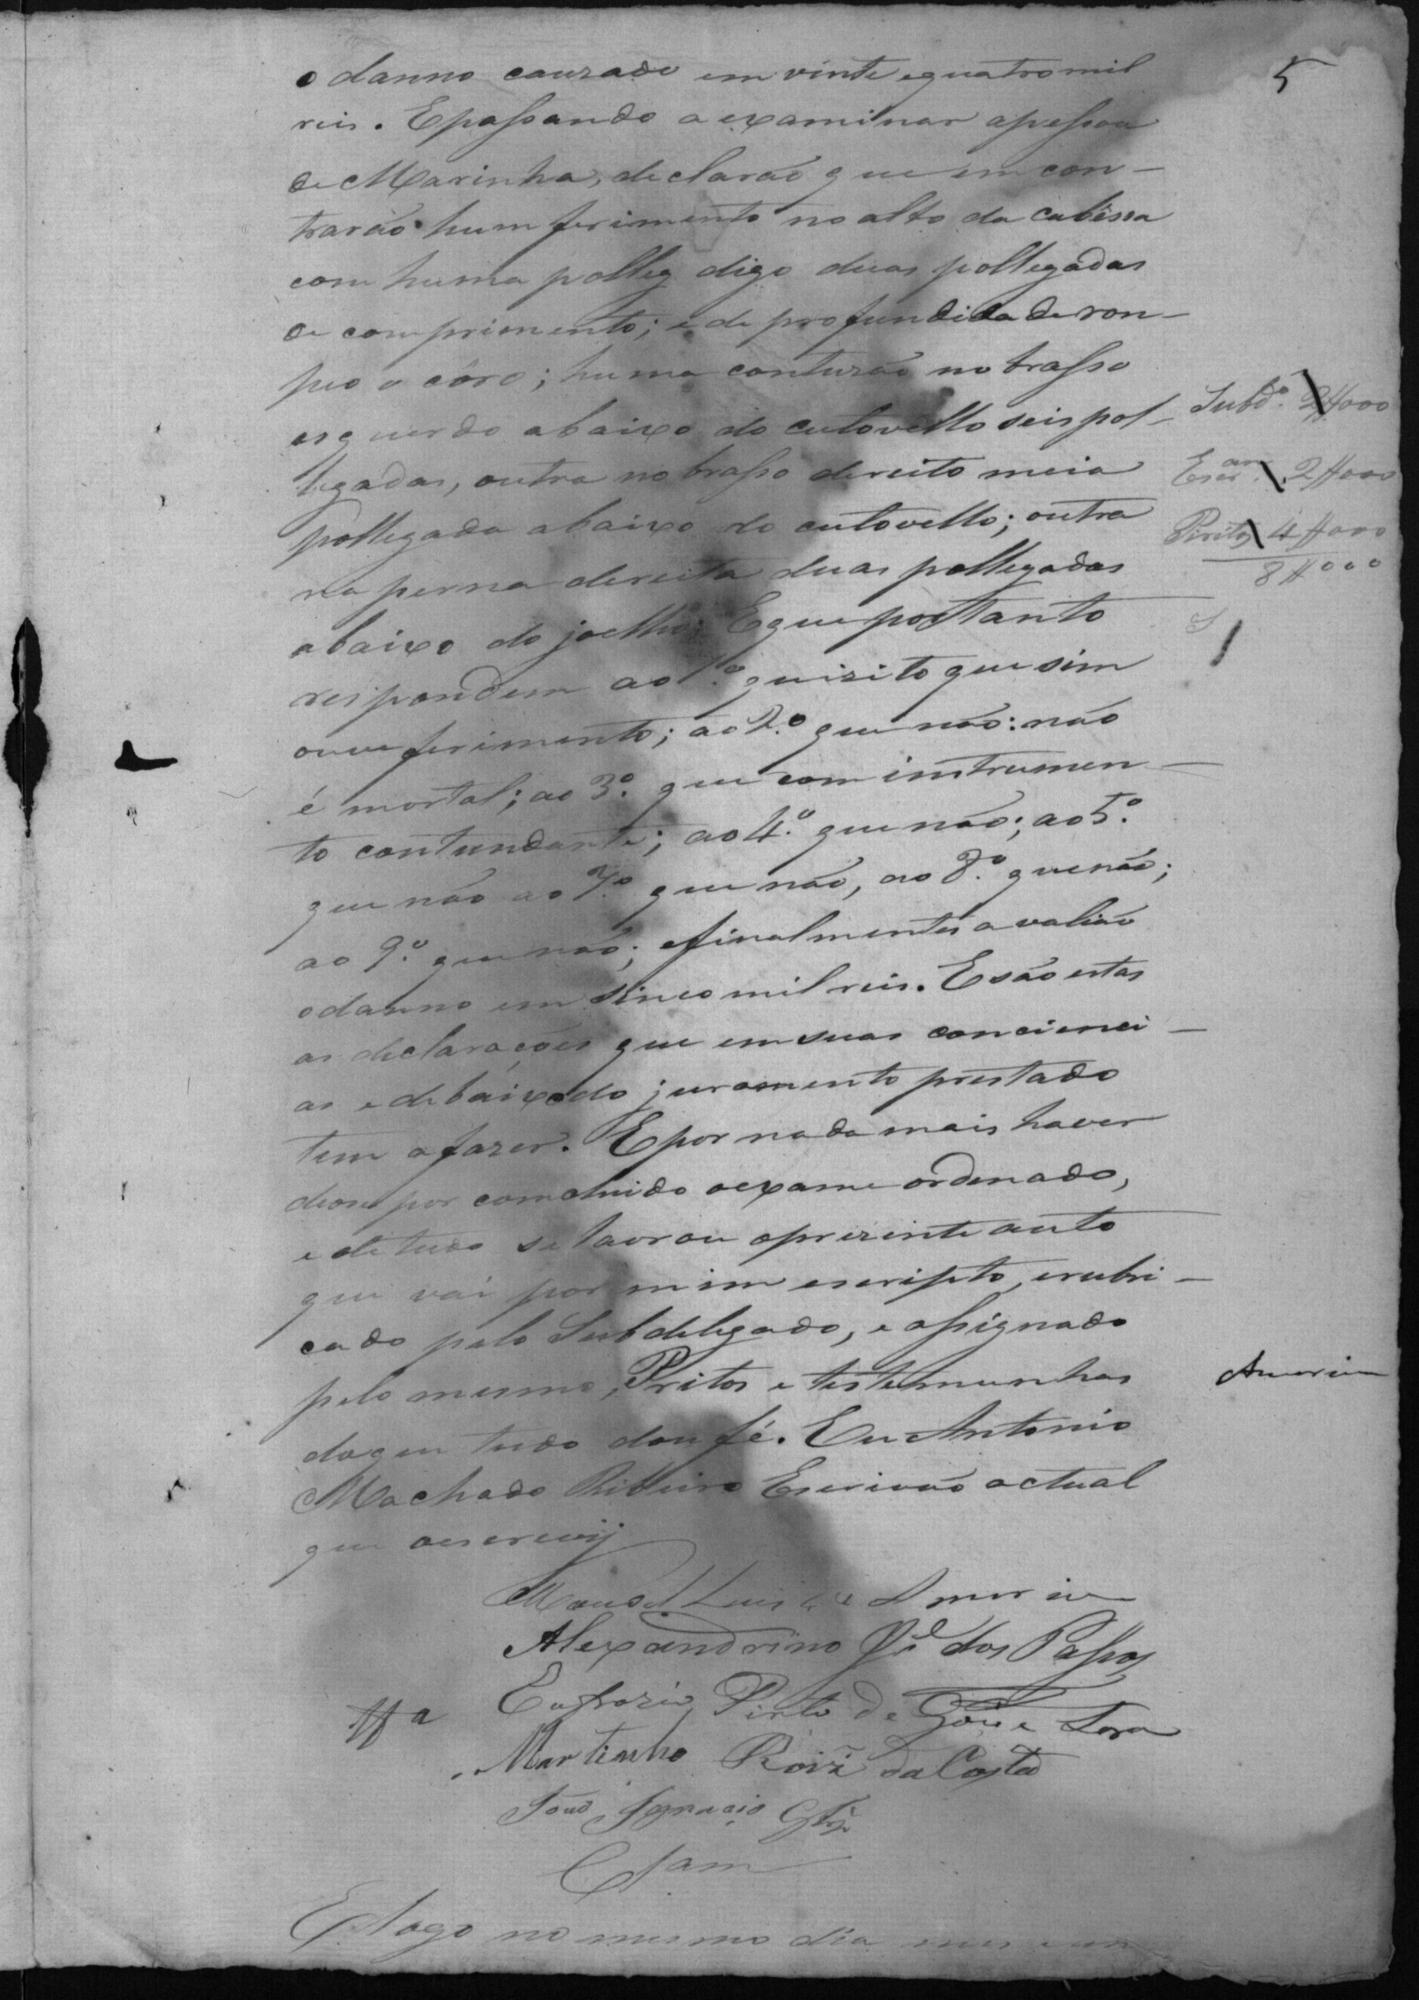 5
o danno cauzado em vinte e quatro mil
reis. E passando a examinar a pessoa
de Marinha, declarão que em con-
trarão hum ferimento no alto da cabessa
com huma polleg digo duas pollegadas
de comprimento; e de profundidade ron-
peo o côro; huma contuzão no brasso
esquerdo abaixo do cutovello seis pol-
legadas, outra no brasso direito meia
pollegada abaixo do cutovello; outra
na perna direita duas pollegadas
abaixo do joelho. E que portanto
respondem ao 1.º quizito que sim
ouve ferimento; ao 2.º que não: não
é mortal; ao 3.º que com instrumen-
to contundente; ao 4.º que não; ao 5.º
que não ao 7.º que não, ao 8.º que não;
ao 9.º que não; e finalmente avalião
o danno em sinco mil reis. E são estas
as declarações que em suas conciencí-
as e debaixo do juramento prestado
tem a fazer. E por nada mais haver
deose por concluido o exame ordenado,
e de tudo se lavrou o prezente auto
que vai por mim escripto, e rubri-
cado pelo Subdelegado, e assignado
pelo mesmo, Pritos e testemunhas
do que tudo dou fé. Eu Antonio
Machado Ribeiro Escrivão actual
que o escrevij
Subd.º 2#000
Escr.am 2#000
Piritos 4#000
8#000
Amorim
Manoel Luis de Amorim
Alexandrino Je dos Passos
Eufrazio Pinto de Góes e
Martinho Roiz da Costa
Ignacio
E logo no mesmo dia mes